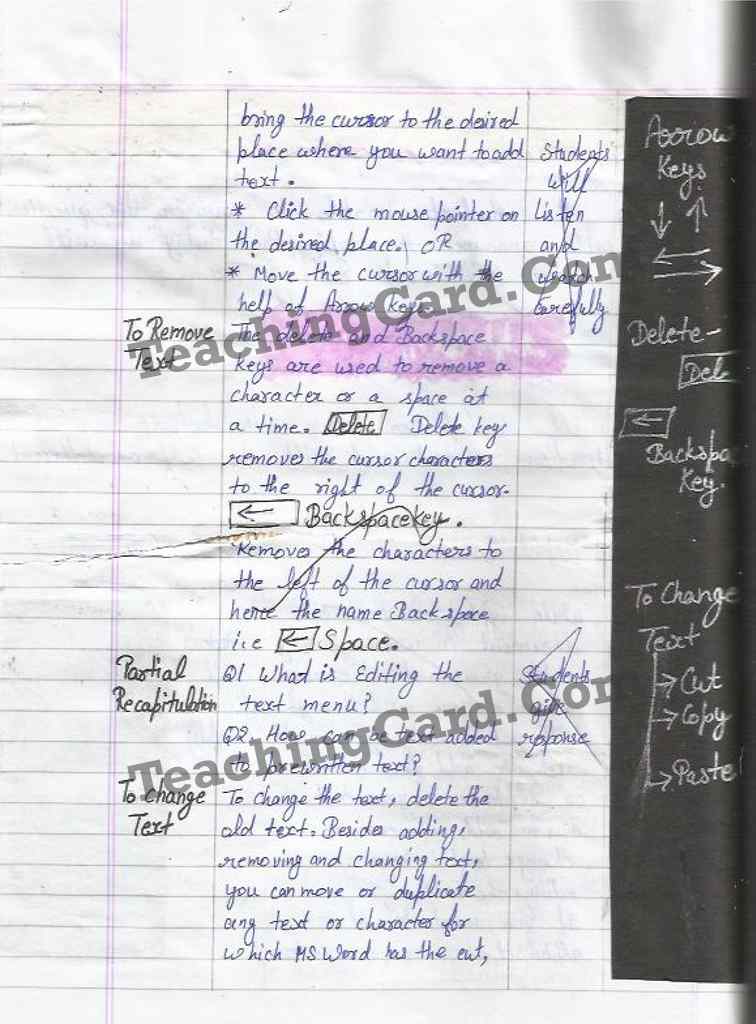 bring the cursor to the desired
place where you want to add
text.
* Click the mouse pointer on
the desired place. OR
* Move the cursor with the
help of Arrow Keys.
Students
will
Listen
and
Carefully
To Remove
Text
The delete and Backspace
keys are used to remove a
character or a space at
a time. Delete Delete key
removes the cursor characters
to the right of the cursor.
← Backspace key.
Removes the characters to
the left of the cursor and
hence the name Backspace
i.e ← Space.
Partial
Recapitulation
Q1 What is Editing the
text menu?
Q2. How can be text added
to prewritten text?
Students
give
response
To change
Text
To change the text, delete the
old text. Besides adding,
removing and changing text,
you can move or duplicate
any text or character for
which MS Word has the cut,
Arrow
Keys
↓ ↑
←
→
Delete-
Dele
←
Backspa
Key.
To Change
Text
→ Cut
→ Copy
→ Paste
TeachingCard.Com
TeachingCard.Com